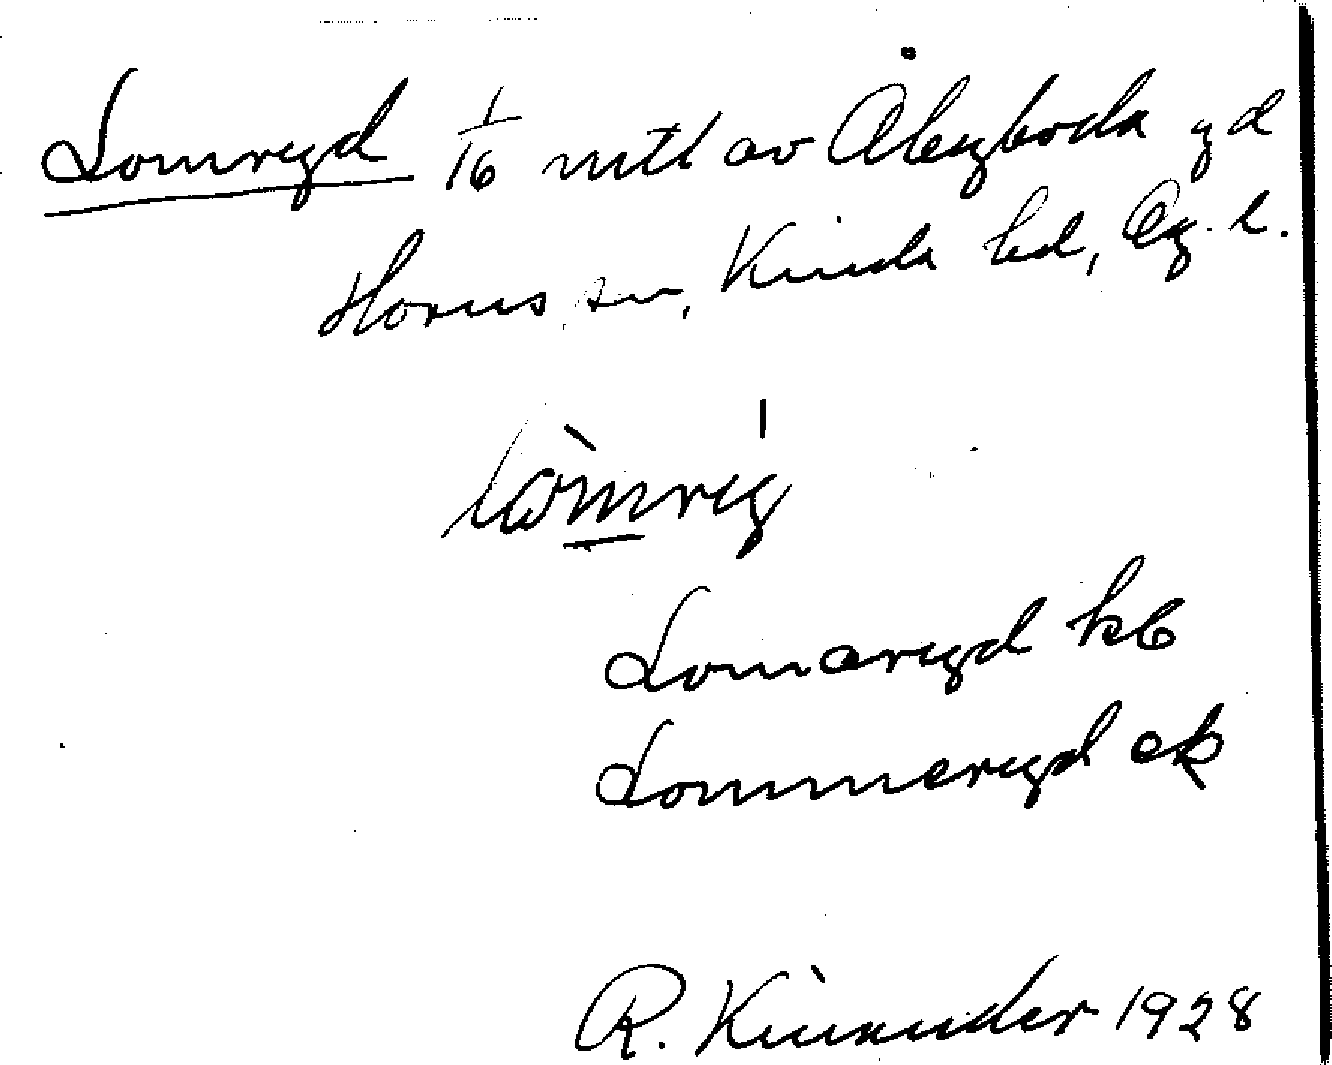 Lomryd 1/16 mtl av Åbyboda gd
Horns sn, Kinda hd, Ög. l.
lòmrýg
Lomaryd kb
Lommeryd ek
R. Kinnander 1928